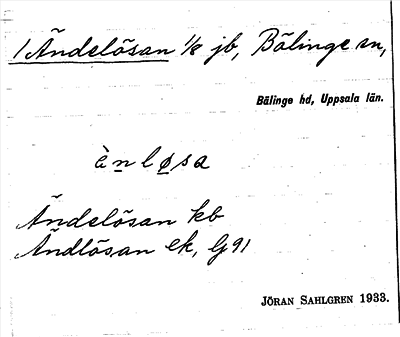 1 Ändelösan 1/8 jb, Bälinge sn,
Bälinge hd, Uppsala län.
ä̀n̲lø̲sa
Ändelösan kb
Ändlösan ek, lj 91
JÖRAN SAHLGREN 1933.